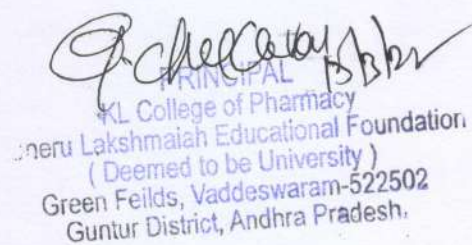 PRINCIPAL
KL College of Pharmacy
neru Lakshmaiah Educational Foundation
( Deemed to be University )
Green Feilds, Vaddeswaram-522502
Guntur District, Andhra Pradesh.